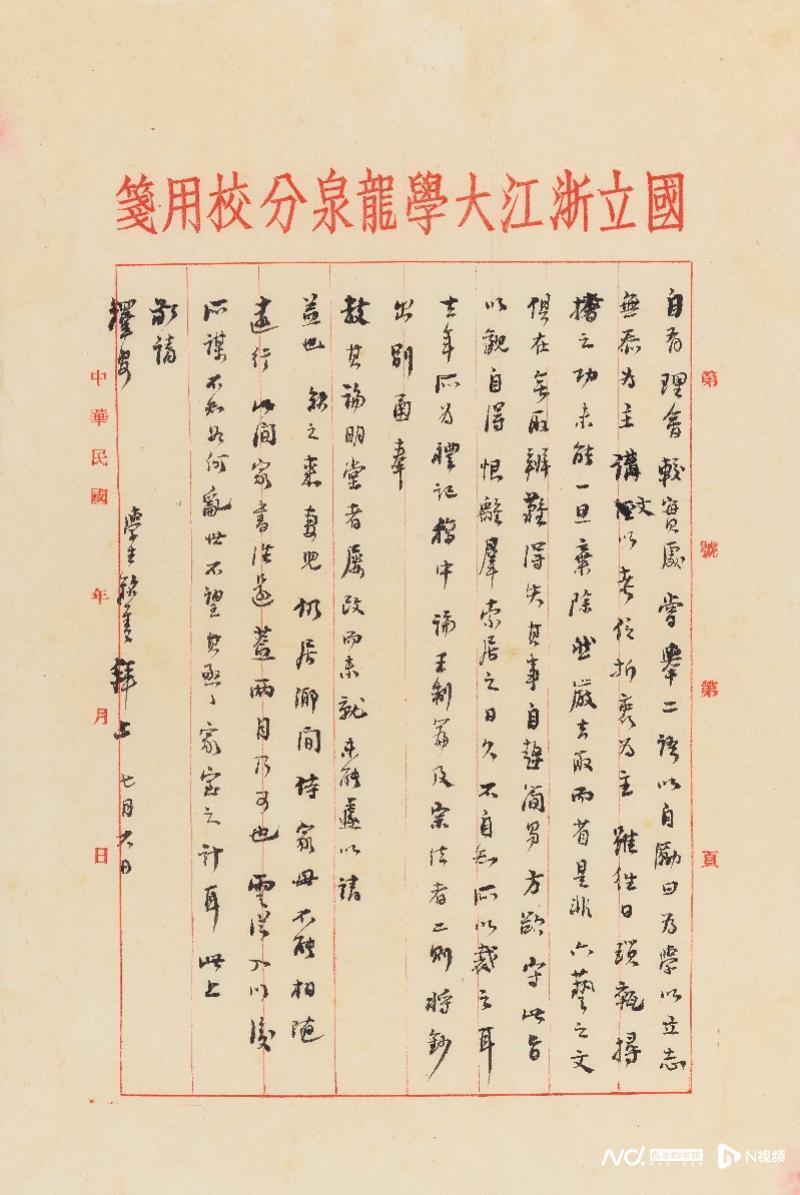 國立浙江大學龍泉分校用箋
第 號 第 頁
自有理會較實處嘗舉二語以自勵曰為學以立志
無忝為主講文以考信折衷為主雖往日瑣瓻撏
撦之功未能一旦棄除然嚴去取而省是非六藝之文
俱在無取辨難得失其事自趨簡易方欲守此旨
以觀自得恨離羣索居之日久不自知所以裁之耳
去年所為禮記稿中論王制篇及宗法者二則將鈔
出別函奉
教其論明堂者屢改而未就未能遽以請
益也 之來妻兒仍居鄉間侍家母不能相隨
遠行此間家書往還蓋兩月乃可也雲從入川後
所謀不知如何亂世不望其亟亟家室之計耳此上
敬請
擇安
學生 拜上 七月六日
中華民國 年 月 日
南方都市報 N视频